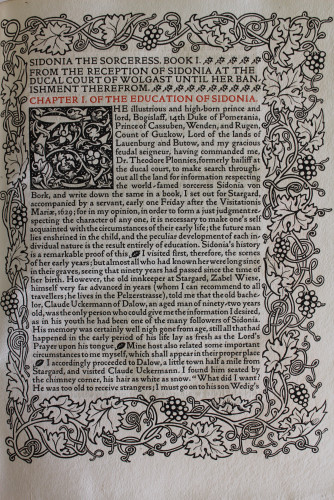 SIDONIA THE SORCERESS. BOOK I.
FROM THE RECEPTION OF SIDONIA AT THE
DUCAL COURT OF WOLGAST UNTIL HER BAN,
ISHMENT THEREFROM.
CHAPTER I. OF THE EDUCATION OF SIDONIA.
THE illustrious and high-born prince and
lord, Bogislaff, 14th Duke of Pomerania,
Prince of Cassuben, Wenden, and Rugen,
Count of Guzkow, Lord of the lands of
Lauenburg and Butow, and my gracious
feudal seigneur, having commanded me,
Dr. Theodore Plonnies, formerly bailiff at
the ducal court, to make search through-
out all the land for information respecting
the world-famed sorceress Sidonia von
Bork, and write down the same in a book, I set out for Stargard,
accompanied by a servant, early one Friday after the Visitationis
Mariæ, 1629; for in my opinion, in order to form a just judgment re-
specting the character of any one, it is necessary to make one's self
acquainted with the circumstances of their early life; the future man
lies enshrined in the child, and the peculiar development of each in-
dividual nature is the result entirely of education. Sidonia's history
is a remarkable proof of this. I visited first, therefore, the scenes
of her early years; but almost all who had known her were long since
in their graves, seeing that ninety years had passed since the time of
her birth. However, the old innkeeper at Stargard, Zabel Wiese,
himself very far advanced in years (whom I can recommend to all
travellers; he lives in the Pelzerstrasse), told me that the old bache-
lor, Claude Uckermann of Dalow, an aged man of ninety-two years
old, was the only person who could give me the information I desired,
as in his youth he had been one of the many followers of Sidonia.
His memory was certainly well nigh gone from age, still all that had
happened in the early period of his life lay as fresh as the Lord's
Prayer upon his tongue. Mine host also related some important
circumstances to me myself, which shall appear in their proper place.
I accordingly proceeded to Dalow, a little town half a mile from
Stargard, and visited Claude Uckermann. I found him seated by
the chimney corner, his hair as white as snow. "What did I want?
He was too old to receive strangers; I must go on to his son Wedig's